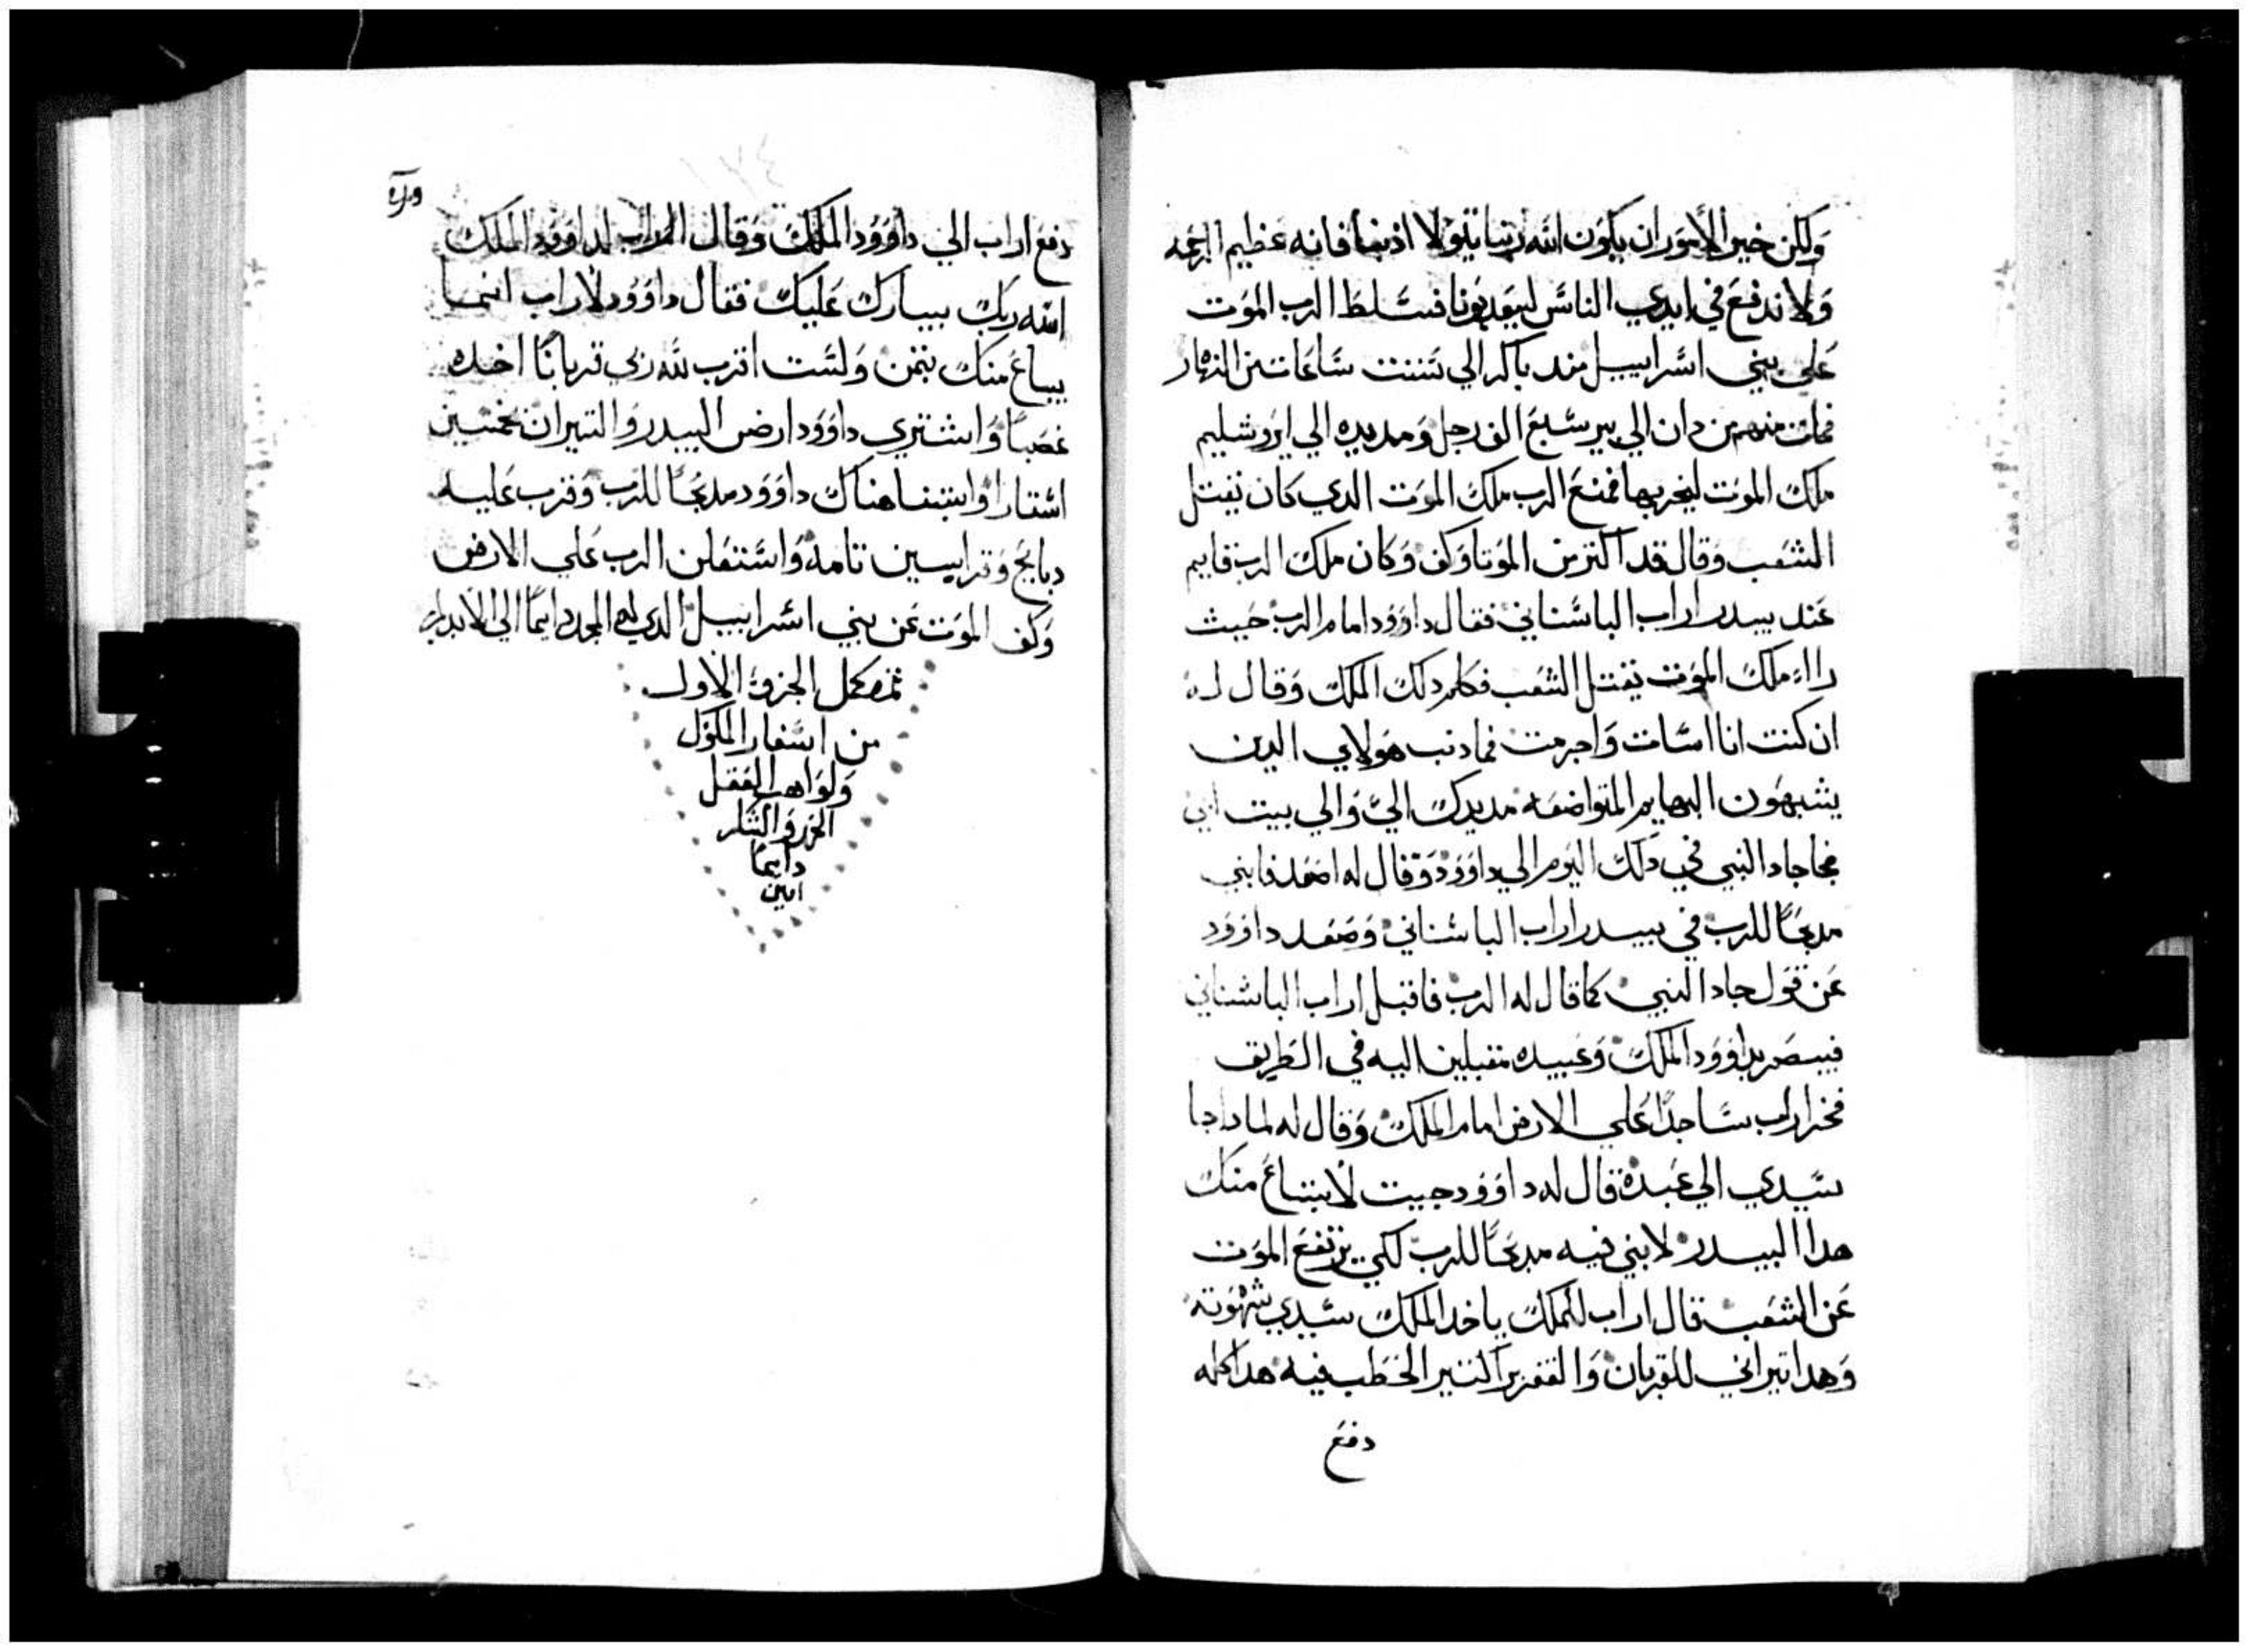 ولكن خير الأمور ان يكون الله ربنا يتولا ادبنا فانه عظيم الرحمه
ولا ندفع في ايدي الناس ليعدبونا فسلط الرب الموت
علي بني اسراييل مند باكر الي ستت ساعات من النهار
فمات منهم من دان الي بير سبع الف رجل ومد يده الي ايروشليم
ملك الموت ليخربها فمنع الرب ملك الموت الدي كان يقتل
الشعب وقال قد اكترمن الموتا وكف وكان ملك الرب قايم
عند بيدر اراب الباسناني فقال داوود امام الرب حيث
راا ملك الموت يقتل الشعب فكلم دلك الملك وقال له
ان كنت انا اسات واجرمت فما دنب هولاي الدين
يشبهون البهايم المتواضعه مد يدك الي والي بيت ابي
فجا جاد النبي في دلك اليوم الي داوود وقال له اصعد فابني
مدبحا للرب في بيدر اراب الباسناني وصعد داوود
عن قول جاد النبي كما قال له الرب فاقبل اراب الباسناني
فبصر بداوود الملك وعبيده مقبلين اليه في الطريق
فخر اراب ساجدا علي الارض امام الملك وقال له لمادا جا
سيدي الي عبده قال له داوود جييت لابتاع منك
هدا البيدر لابني فيه مدبحا للرب لكي يرتفع الموت
عن الشعب قال اراب للملك ياخد الملك سيدي شهوته
وهدا تيراني للقربان والنير الحطب فيه هدا كله
دفع
دفع اراب الي داوود الملك وقال اراب لداوود الملك
الله ربك يبارك عليك فقال داوود لاراب انما
يباع منك بتمن ولست اقرب لله ربي قربانا اخده
غصبا واشتري داوود ارض البيدر والتيران بخمسين
استارا وابتنا هناك داوود مدبحا للرب وقرب عليه
دبايح وقرابين تامه واستعلن الرب علي الارض
وكف الموت عن بني اسراييل الدي له المجد دايما الي الابد
تم وكمل الجزو الاول
من اسفار الملوك
ولواهب العقل
والشكر
دايما
امين